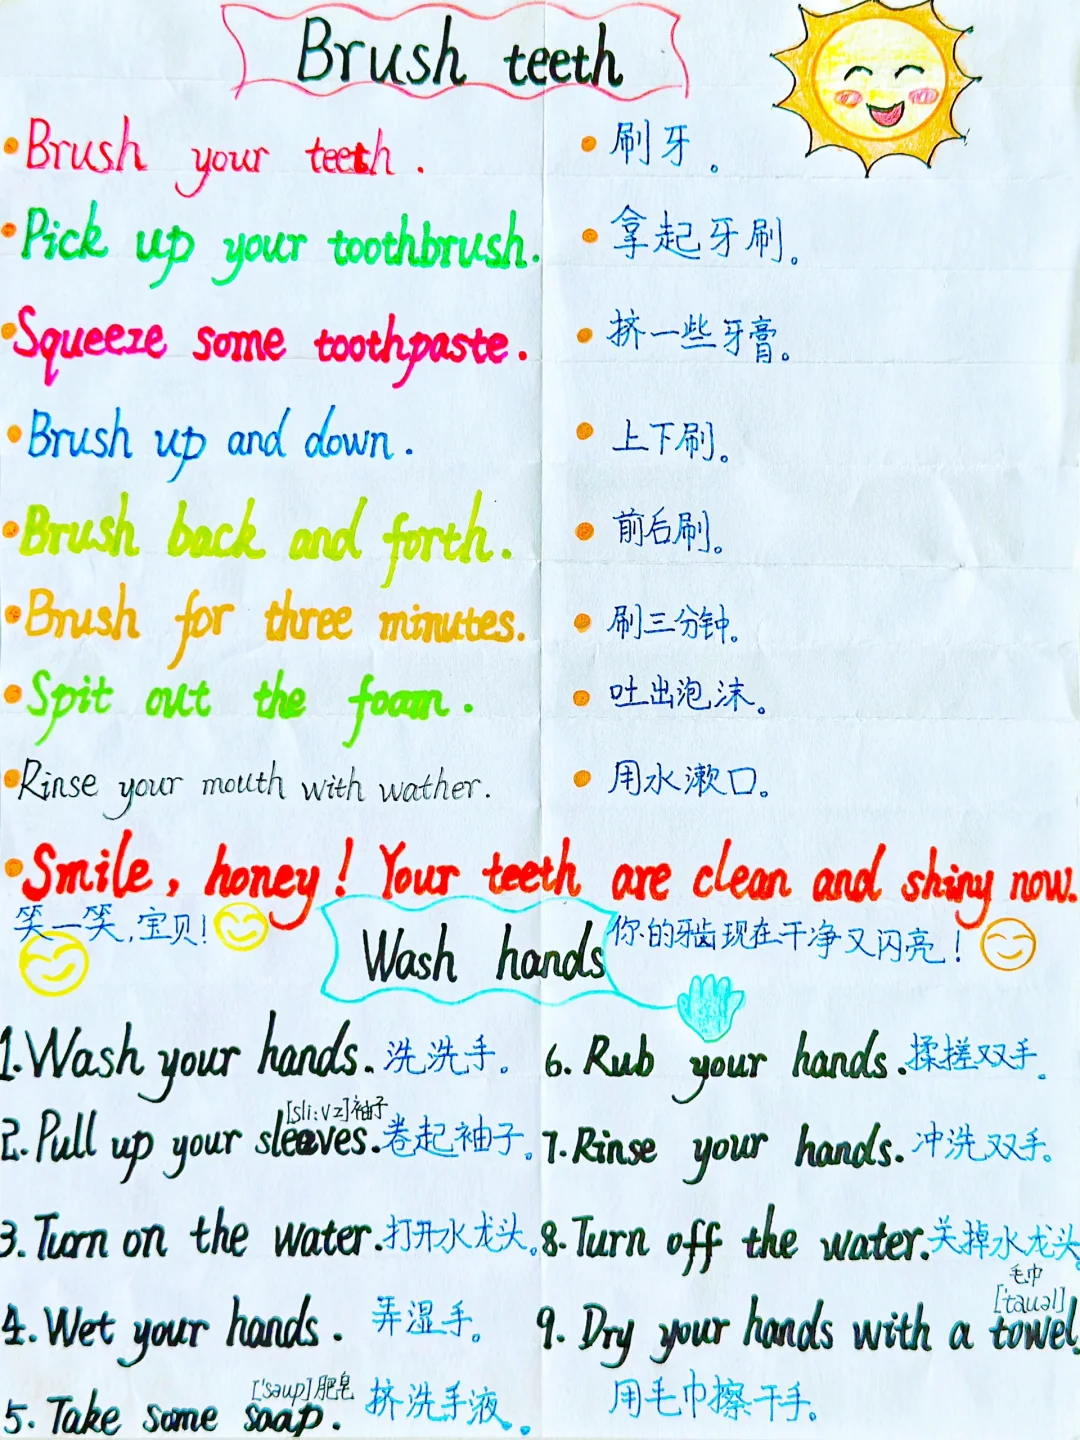 Brush teeth
Brush your teeth.
刷牙。
Pick up your toothbrush.
拿起牙刷。
Squeeze some toothpaste.
挤一些牙膏。
Brush up and down.
上下刷。
Brush back and forth.
前后刷。
Brush for three minutes.
刷三分钟。
Spit out the foam.
吐出泡沫。
Rinse your mouth with wather.
用水漱口。
Smile, honey! Your teeth are clean and shiny now.
笑一笑,宝贝!
你的牙齿现在干净又闪亮!
Wash hands
1. Wash your hands. 洗洗手。
[sli:vz]袖子
2. Pull up your sleeves. 卷起袖子。
3. Turn on the water. 打开水龙头。
4. Wet your hands. 弄湿手。
['səup]肥皂
5. Take some soap. 挤洗手液。
6. Rub your hands. 揉搓双手。
7. Rinse your hands. 冲洗双手。
8. Turn off the water. 关掉水龙头。
毛巾
['tauəl]
9. Dry your hands with a towel.
用毛巾擦干手。